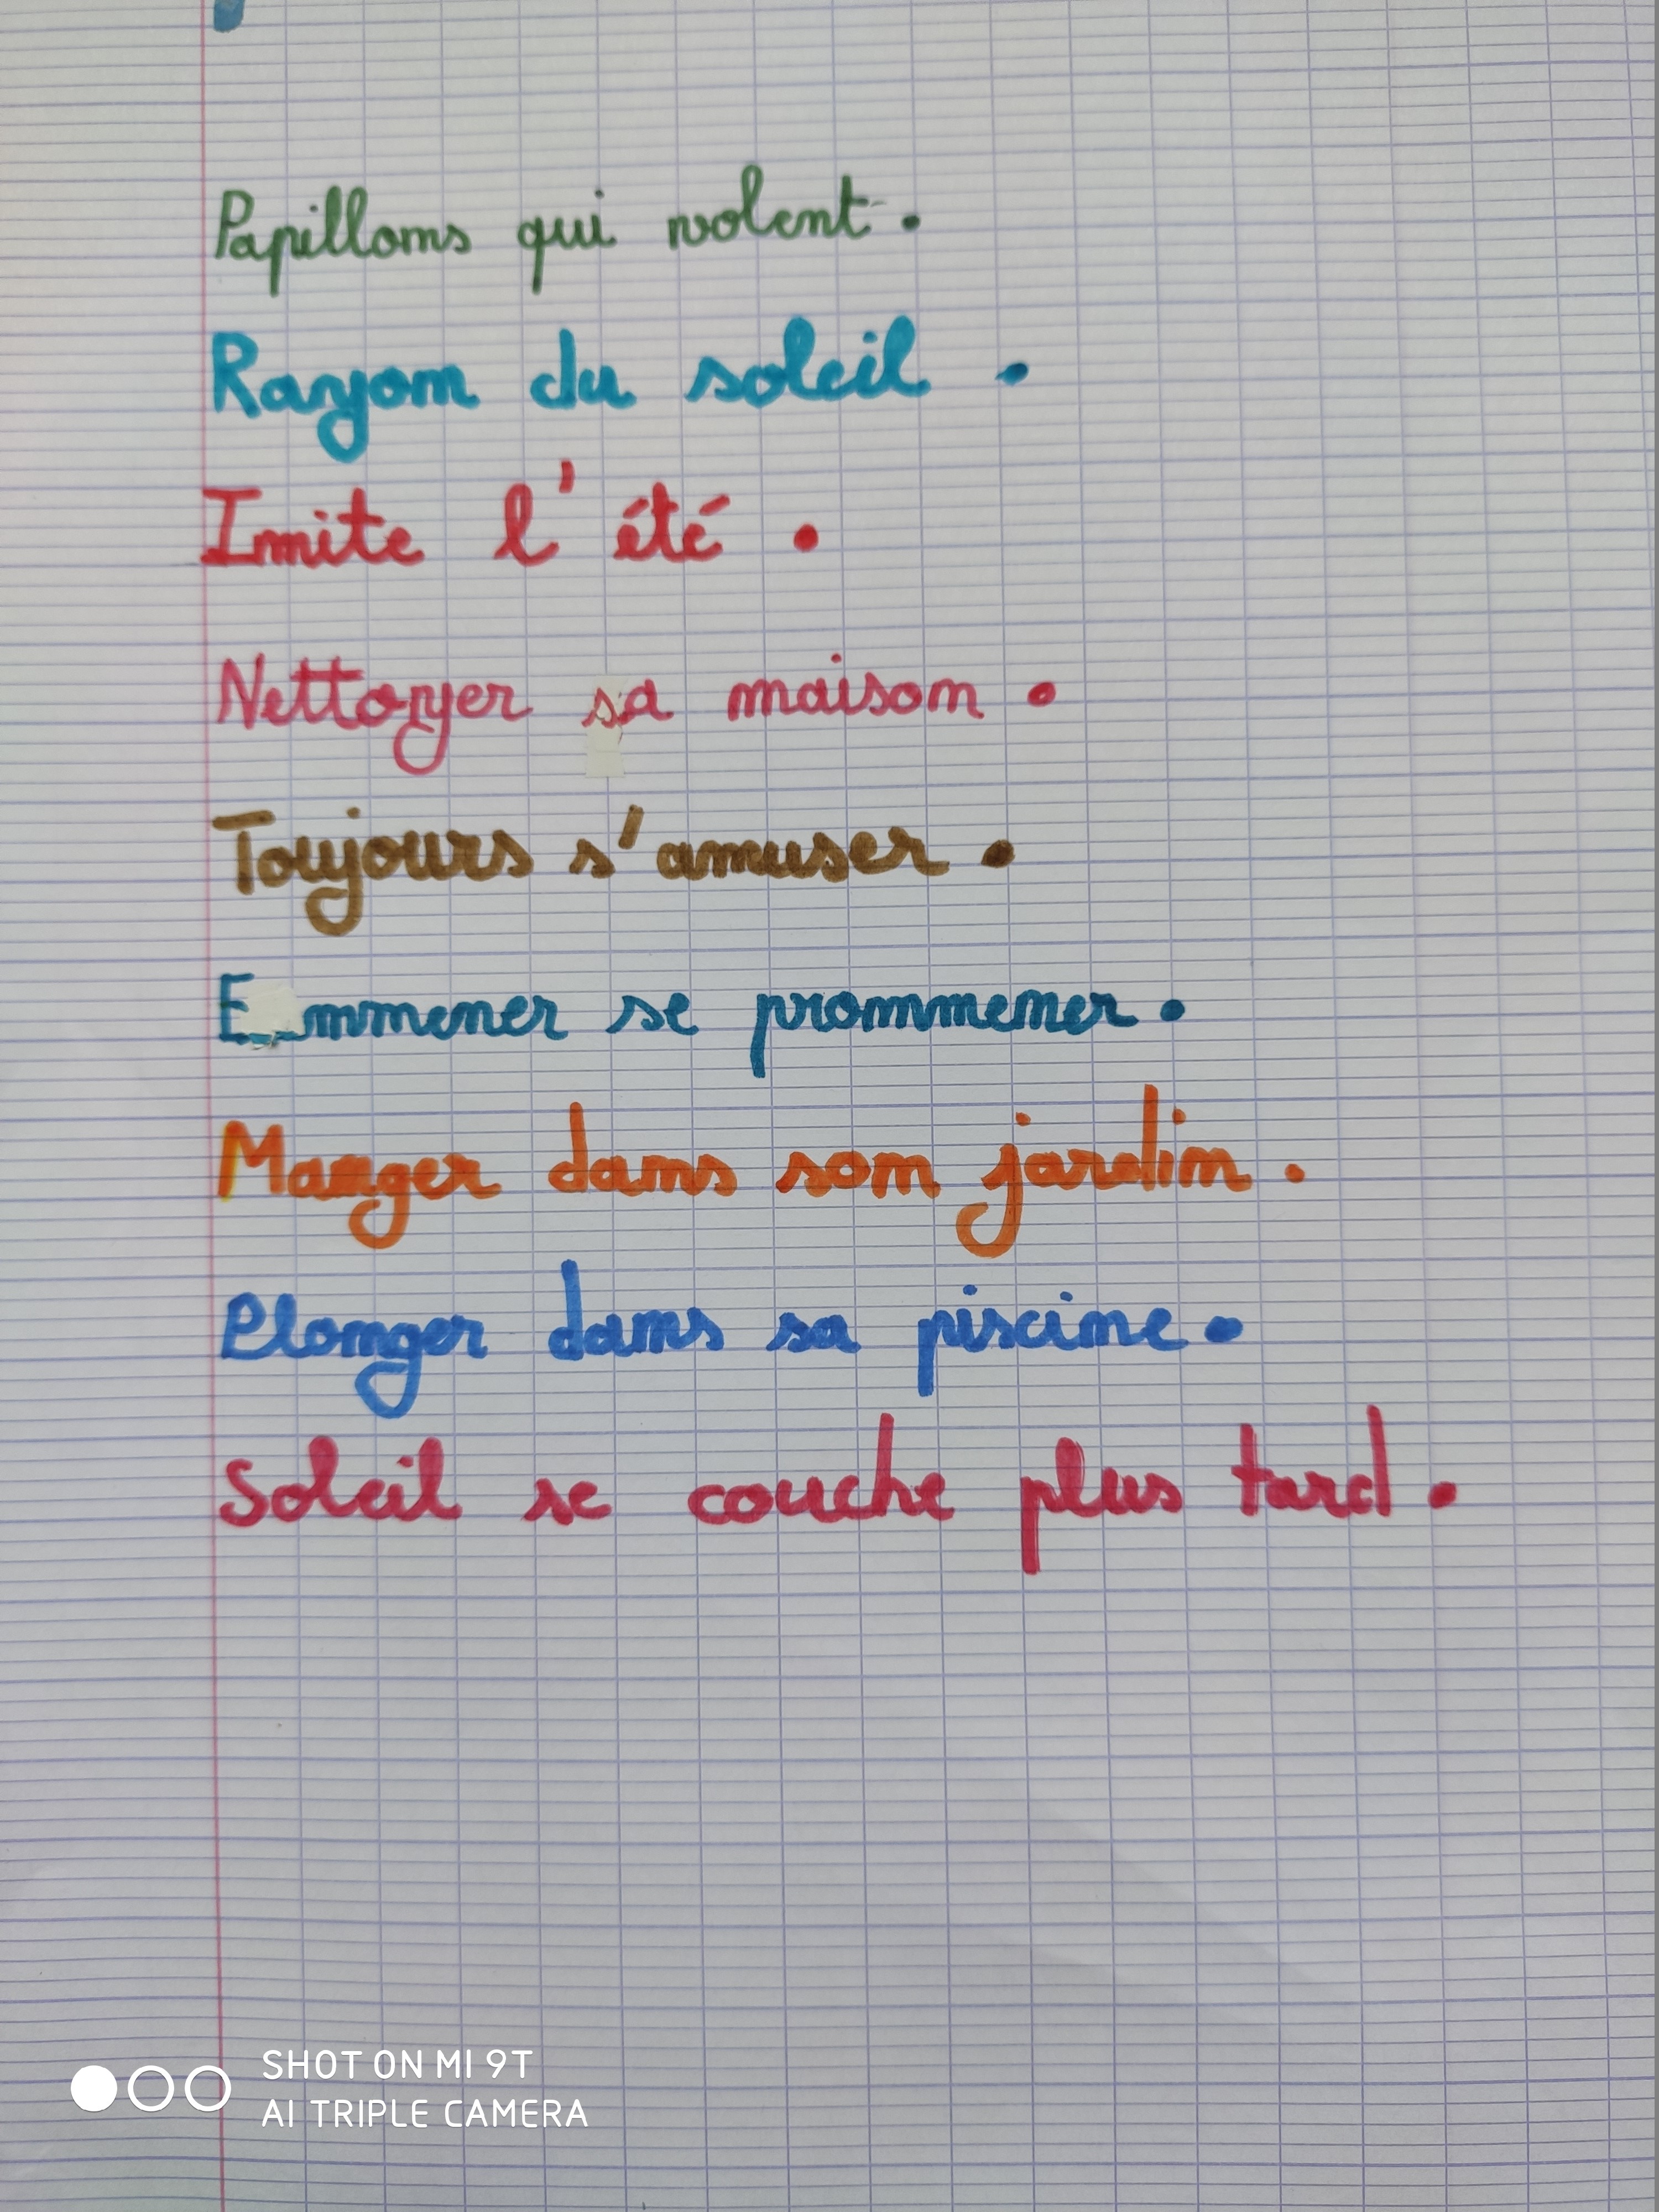 Papillons qui volent.
Rayon du soleil.
Imite l'été.
Nettoyer sa maison.
Toujours s'amuser.
Emmener se prommener.
Manger dans son jardin.
Plonger dans sa piscine.
Soleil se couche plus tard.
SHOT ON MI 9T
AI TRIPLE CAMERA